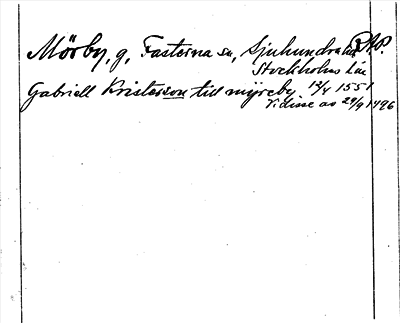 Mörby, g, Fasterna sn, Sjuhundra hd RAP.
Stockholms Län
Gabriell Kristersson till myreby 12/4 1551
Vidisse av 29/9 1496